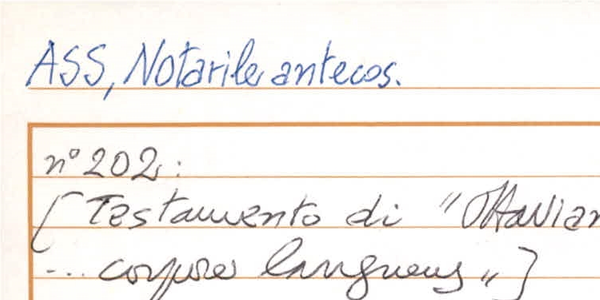 ASS, Notarile antecos.
n° 202:
[Testamento di "Ottavian
... corpore languens"]